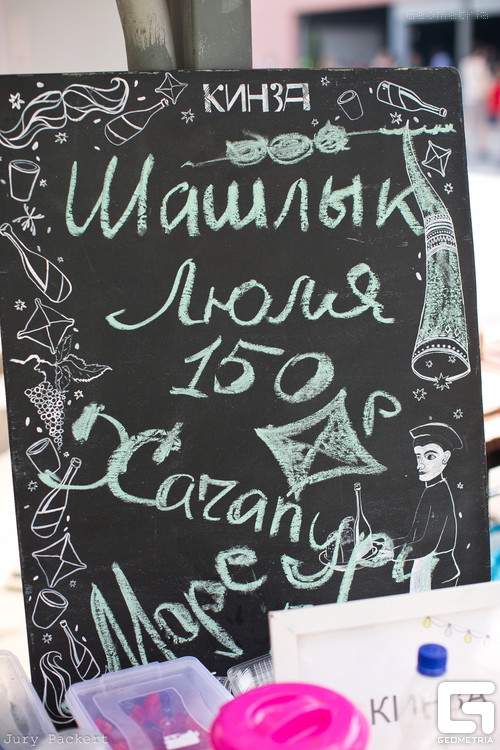 КИНЗА
Шашлык
Люля
150 р
Хачапури
Море
КИНЗА
GEOMETRIA
Jury Backert